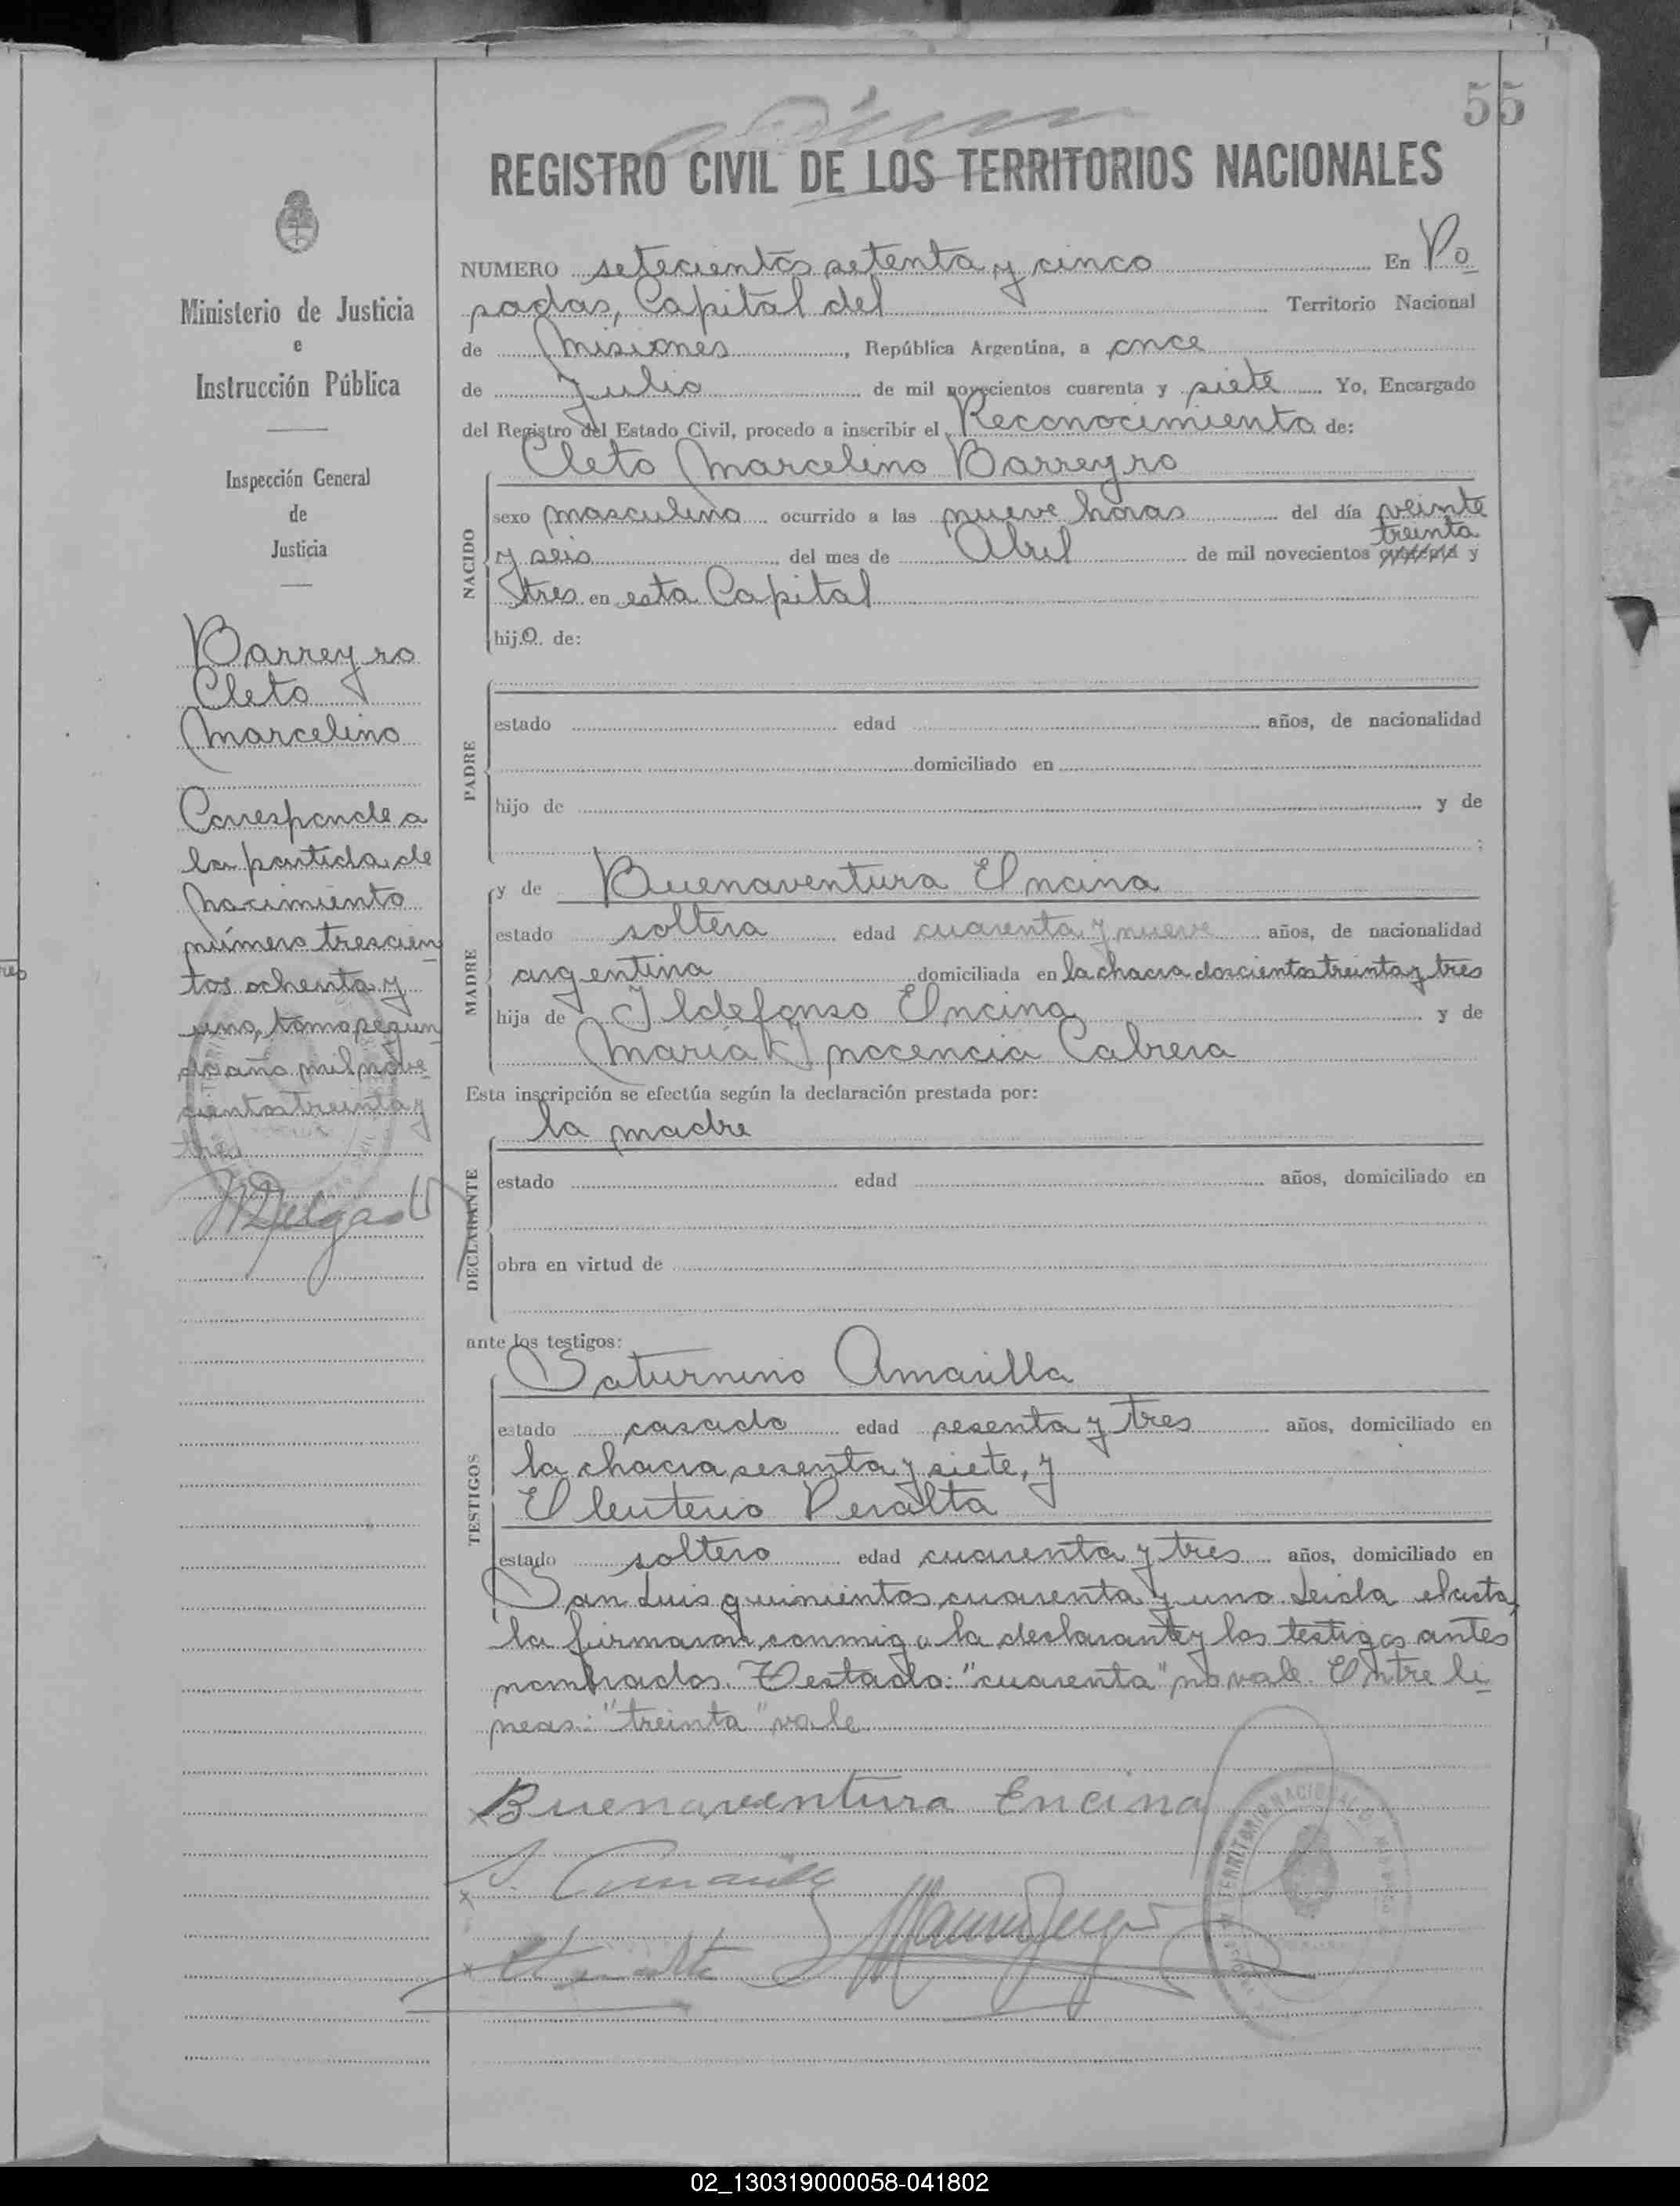 55
REGISTRO CIVIL DE LOS TERRITORIOS NACIONALES
Ministerio de Justicia
e
Instrucción Pública
Inspección General
de
Justicia
Barreyro
Cleto
Marcelino
Corresponde a
la partida de
nacimiento
número trescien
tos ochenta y
uno, tomo segun
do año mil nove
cientos treinta y
tres
NUMERO setecientos setenta y cinco En Po
sadas, Capital del Territorio Nacional
de Misiones, República Argentina, a once
de Julio de mil novecientos cuarenta y siete Yo, Encargado
del Registro del Estado Civil, procedo a inscribir el Reconocimiento de:
Cleto Marcelino Barreyro
NACIDO
sexo masculino ocurrido a las nueve horas del día veinte
treinta
y seis del mes de Abril de mil novecientos cuarenta y
tres en esta Capital
hijo de:
PADRE
estado edad años, de nacionalidad
domiciliado en
hijo de y de
;
MADRE
y de Buenaventura Encina
estado soltera edad cuarenta y nueve años, de nacionalidad
argentina domiciliada en la chacra doscientos treinta y tres
hija de Ildefonso Encina y de
María Inocencia Cabrera
Esta inscripción se efectúa según la declaración prestada por:
la madre
DECLARANTE
estado edad años, domiciliado en
obra en virtud de
ante los testigos:
Saturnino Amarilla
TESTIGOS
estado casado edad sesenta y tres años, domiciliado en
la chacra sesenta y siete, y
Eleuterio Peralta
estado soltero edad cuarenta y tres años, domiciliado en
San Luis quinientos cuarenta y uno. Leída el acta,
la firmaron conmigo la declarante y los testigos antes
nombrados. Testado: "cuarenta" no vale. Entre li
neas: "treinta" vale
Buenaventura Encina
S. Amarilla
02_130319000058-041802